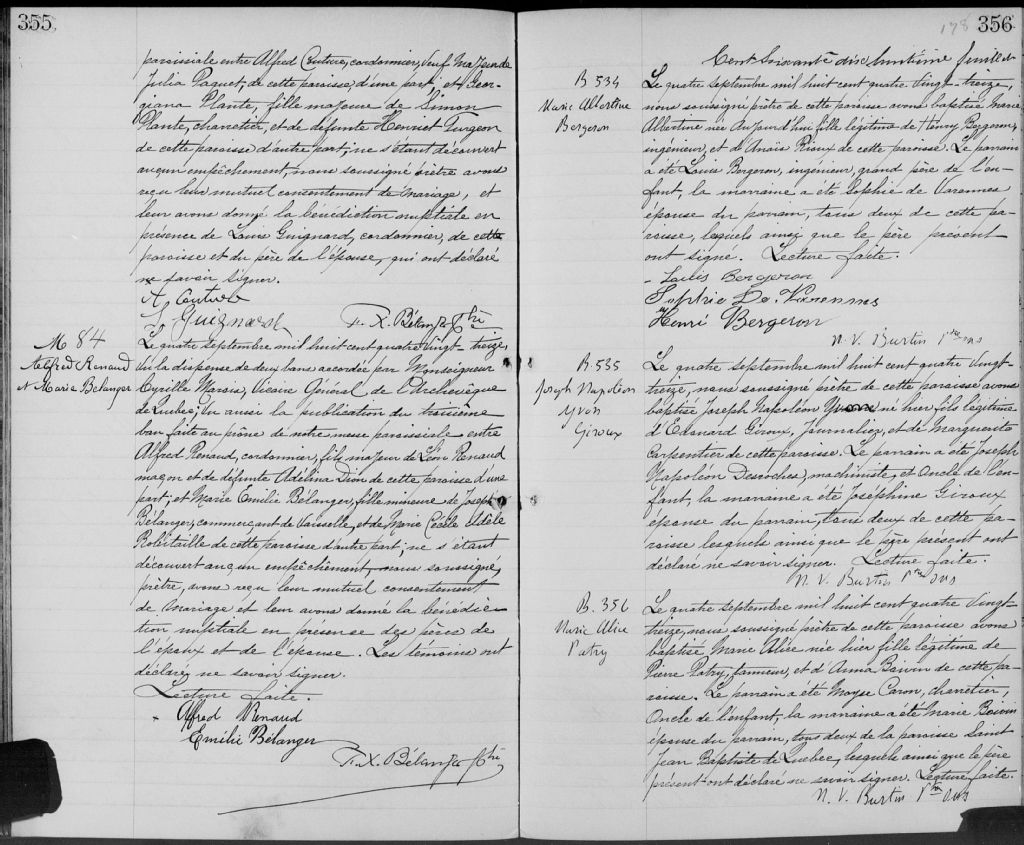 355
paroissiale entre Alfred Couture, cordonnier, veuf majeur de
Julia Paquet, de cette paroisse, d'une part; et Geor-
giana Plante, fille majeure de Simon
Plante, charretier, et de défunte Henriet Turgeon
de cette paroisse d'autre part; ne s'étant découvert
aucun empêchement, nous soussigné prêtre avons
reçu leur mutuel consentement de mariage, et
leur avons donné la bénédiction nuptiale en
présence de Louis Guignard, cordonnier, de cette
paroisse et du père de l'épouse, qui ont déclaré
ne savoir signer.
A Couture
L Guignard
F. X. Bélanger Ptre
M 84
Alfred Renaud
et Marie Bélanger
Le quatre septembre mil huit cent quatre vingt-treize,
vu la dispense de deux bans accordée par Monseigneur
Cyrille Marois, vicaire Général de l'Archevêque
de Québec; vu aussi la publication du troisième
ban faite au prône de notre messe paroissiale entre
Alfred Renaud, cordonnier, fils majeur de Léon Renaud
maçon et de défunte Adélina Dion de cette paroisse d'une
part; et Marie Emilie Bélanger, fille mineure de Joseph
Bélanger, commerçant de vaisselle, et de Marie Cécile Adèle
Robitaille de cette paroisse d'autre part; ne s'étant
découvert aucun empêchement, nous soussigné,
prêtre, avons reçu leur mutuel consentement
de mariage et leur avons donné la bénédic-
tion nuptiale en présense des pères de
l'époux et de l'épouse. Les témoins ont
déclaré ne savoir signer.
Lecture faite.
Alfred Renaud
Emilie Bélanger
F. X. Bélanger Ptre
178
356
Cent soixante dix huitième feuillet
B 534
Marie Albertine
Bergeron
Le quatre septembre mil huit cent quatre vingt-treize,
nous soussigné prêtre de cette paroisse avons baptisé Marie
Albertine née aujourd'hui fille légitime de Henry Bergeron,
ingénieur, et d'Anaïs Rioux de cette paroisse. Le parrain
a été Louis Bergeron, ingénieur, grand père de l'en-
fant, la marraine a été Sophie de Varennes
épouse du parrain, tous deux de cette pa-
roisse, lesquels ainsi que le père présent
ont signé. Lecture faite.
Louis Bergeron
Sophie De Varennes
Henri Bergeron
N. V. Burtin Ptre oms
B. 535
Joseph Napoléon
Yvon
Giroux
Le quatre septembre mil huit cent quatre vingt-
treize, nous soussigné prêtre de cette paroisse avons
baptisé Joseph Napoléon Yvon né hier fils légitime
d'Edouard Giroux, journalier, et de Marguerite
Carpentier de cette paroisse. Le parrain a été Joseph
Napoléon Desroches, machiniste, et oncle de l'en-
fant, la marraine a été Joséphine Giroux
épouse du parrain, tous deux de cette pa-
roisse lesquels ainsi que le père présent ont
déclaré ne savoir signer. Lecture faite.
N. V. Burtin Ptre oms
B. 356
Marie Alice
Patry
Le quatre septembre mil huit cent quatre vingt-
treize, nous soussigné prêtre de cette paroisse avons
baptisé Marie Alice née hier fille légitime de
Pierre Patry, tanneur, et d'Anna Boivin de cette pa-
roisse. Le parrain a été Moyse Caron, charretier,
oncle de l'enfant, la marraine a été Marie Boivin
épouse du parrain, tous deux de la paroisse Saint
Jean Baptiste de Québec, lesquels ainsi que le père
présent ont déclaré ne savoir signer. Lecture faite.
N. V. Burtin Ptre oms